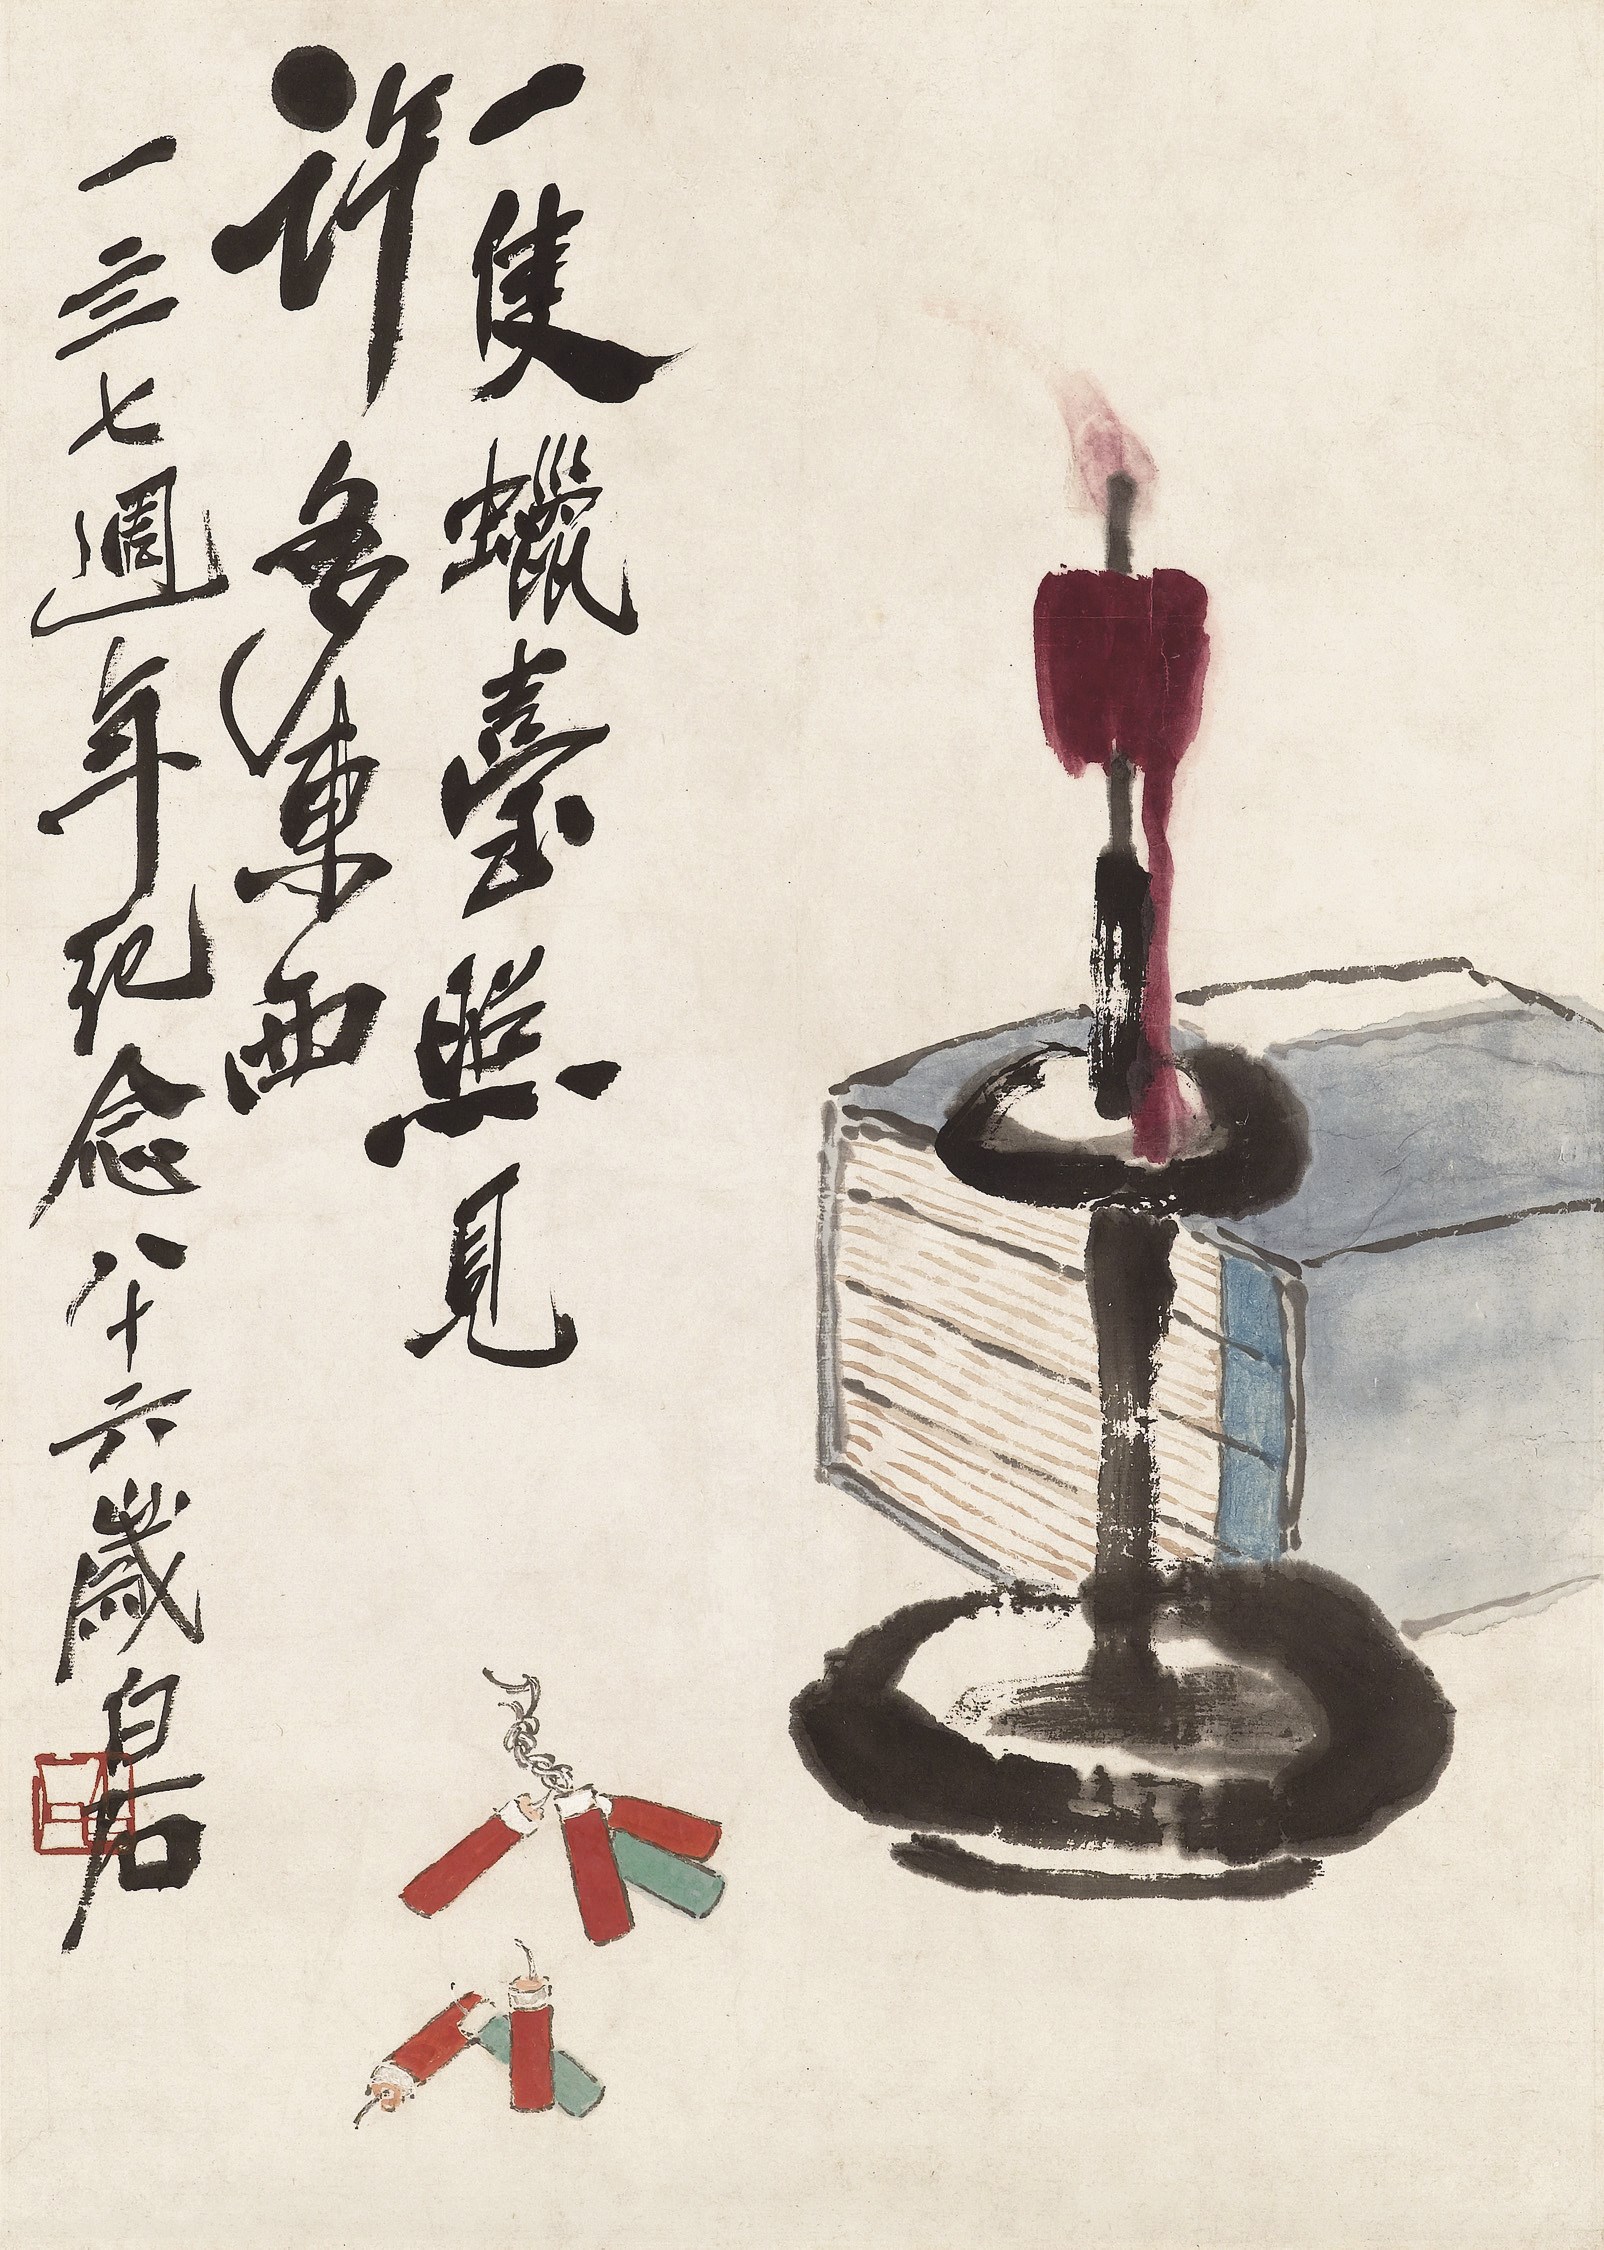 一隻蠟臺照見
許多東西
一三七週年紀念八十六歲白石